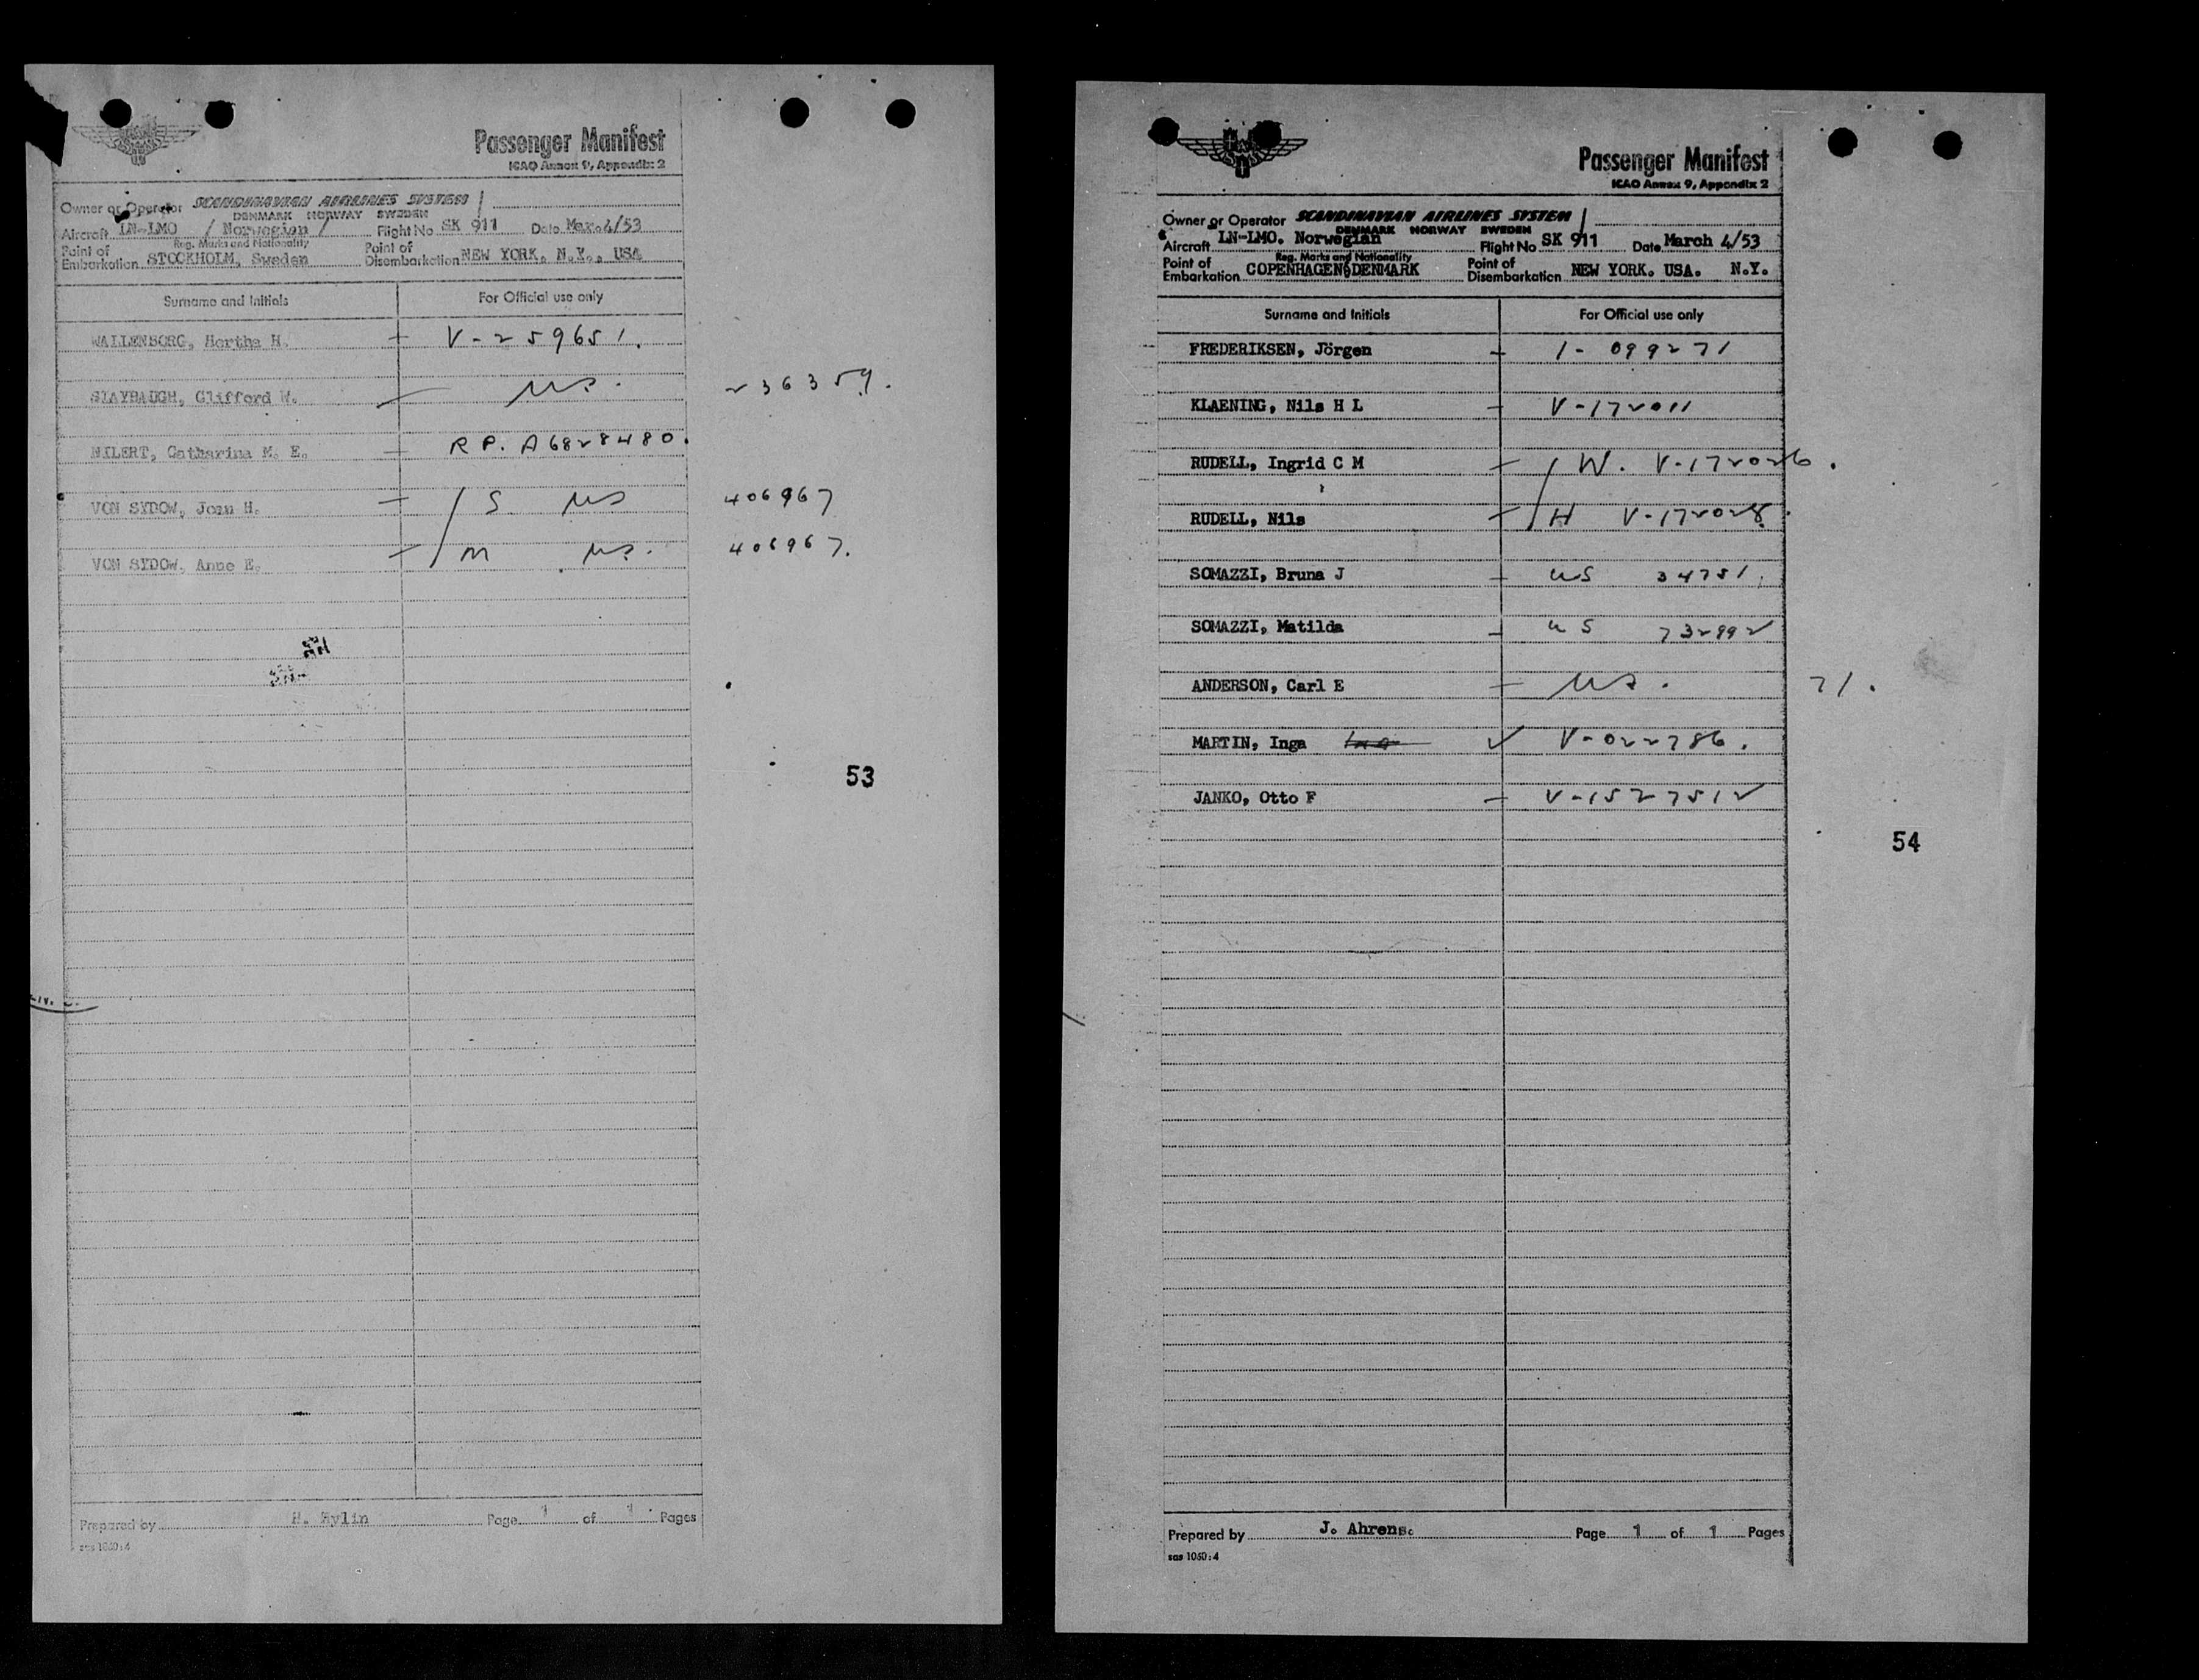 Passenger Manifest
ICAO Annex 9, Appendix 2
Owner or Operator SCANDINAVIAN AIRLINES SYSTEM
DENMARK NORWAY SWEDEN
Aircraft LN-LMO / Norwegian / Flight No SK 911 Date Mar. 4/53
Reg. Marks and Nationality
Point of Embarkation STOCKHOLM, Sweden Point of Disembarkation NEW YORK, N.Y., USA
Surname and Initials For Official use only
WALLENBORG, Hertha H. V-259651.
SLAYBAUGH, Clifford W. US. 236359.
NILERT, Catharina M. E. RP. A6828480.
VON SYDOW, Joan H. S US 406967
VON SYDOW, Anne E. M US. 406967.
53
Prepared by H. Hylin Page 1 of 1 Pages
sas 1060:4
Passenger Manifest
ICAO Annex 9, Appendix 2
Owner or Operator SCANDINAVIAN AIRLINES SYSTEM
DENMARK NORWAY SWEDEN
Aircraft LN-LMO. Norwegian Flight No SK 911 Date March 4/53
Reg. Marks and Nationality
Point of Embarkation COPENHAGEN, DENMARK Point of Disembarkation NEW YORK. USA. N.Y.
Surname and Initials For Official use only
FREDERIKSEN, Jörgen 1-099271
KLAENING, Nils H L V-172011
RUDELL, Ingrid C M W. V-172026.
RUDELL, Nils H V-172028.
SOMAZZI, Bruna J US 34751.
SOMAZZI, Matilda US 732992
ANDERSON, Carl E US. 71.
MARTIN, Inga V-022786.
JANKO, Otto F V-1527512
54
Prepared by J. Ahrens. Page 1 of 1 Pages
sas 1060:4